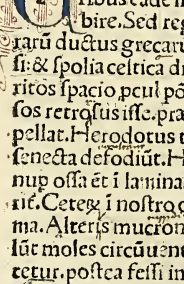 bire. Sed re
rarū ductus grecar
si: & spolia celtica di
ritos spacio pcul pō
sos retrosus isse. pra
pellat. Herodotus t
senecta defodiūt. H
nup ossa ēt ī lamina
rit. Ceteꝝ ī nostro
ma. Alteris mucron
lūt moles circūuen
cetur. postea fessi in